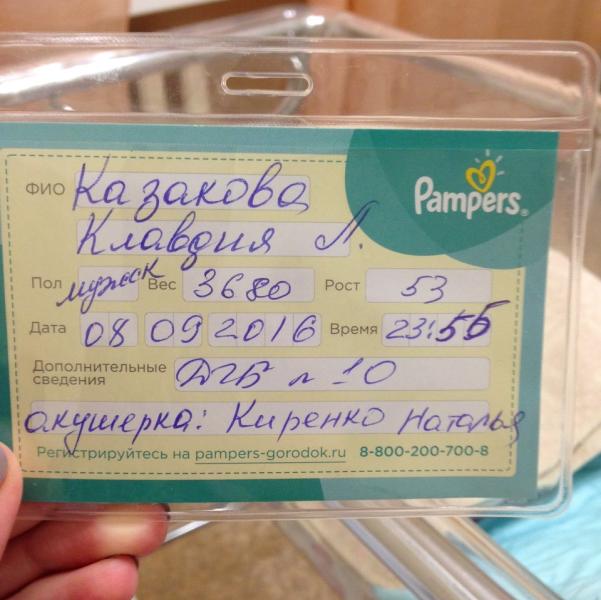 ФИО Казакова
Pampers
Клавдия Л.
Пол мужск Вес 3680 Рост 53
Дата 08 09 2016 Время 23:55
Дополнительные сведения
акушерка: Киренко Наталья
Регистрируйтесь на pampers-gorodok.ru 8-800-200-700-8